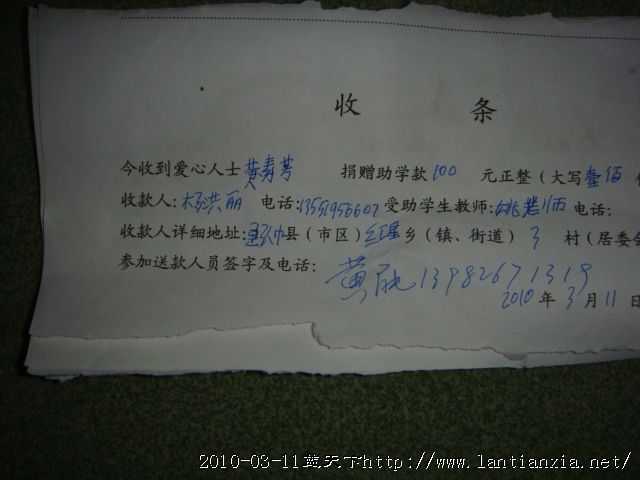 收 条
今收到爱心人士 黄寿芳 捐赠助学款 100 元正整（大写 壹佰
收款人: 杨洪丽 电话: 13551956607 受助学生教师: 姚 老师 电话:
收款人详细地址: 县（市区） 红星 乡（镇、街道） 3 村（居委会
参加送款人员签字及电话: 黄 13982671319
2010 年 3 月 11 日
2010-03-11蓝天下http://www.lantianxia.net/